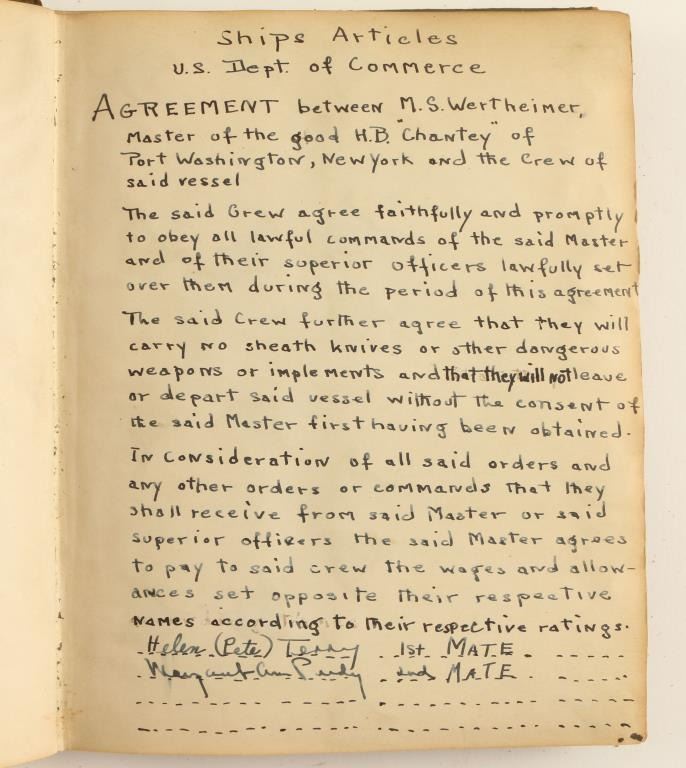 Ships Articles
U.S. Dept. of Commerce
AGREEMENT between M.S. Wertheimer,
Master of the good H.B. "Chantey" of
Port Washington, New York and the Crew of
said vessel
The said Crew agree faithfully and promptly
to obey all lawful commands of the said Master
and of their superior officers lawfully set
over them during the period of this agreement
The said Crew further agree that they will
carry no sheath knives or other dangerous
weapons or implements and that they will not leave
or depart said vessel without the consent of
the said Master first having been obtained.
In consideration of all said orders and
any other orders or commands that they
shall receive from said Master or said
superior officers the said Master agrees
to pay to said crew the wages and allow-
ances set opposite their respective
names according to their respective ratings.
Helen (Pete) Terry 1st MATE
Margaret Ann 2nd MATE